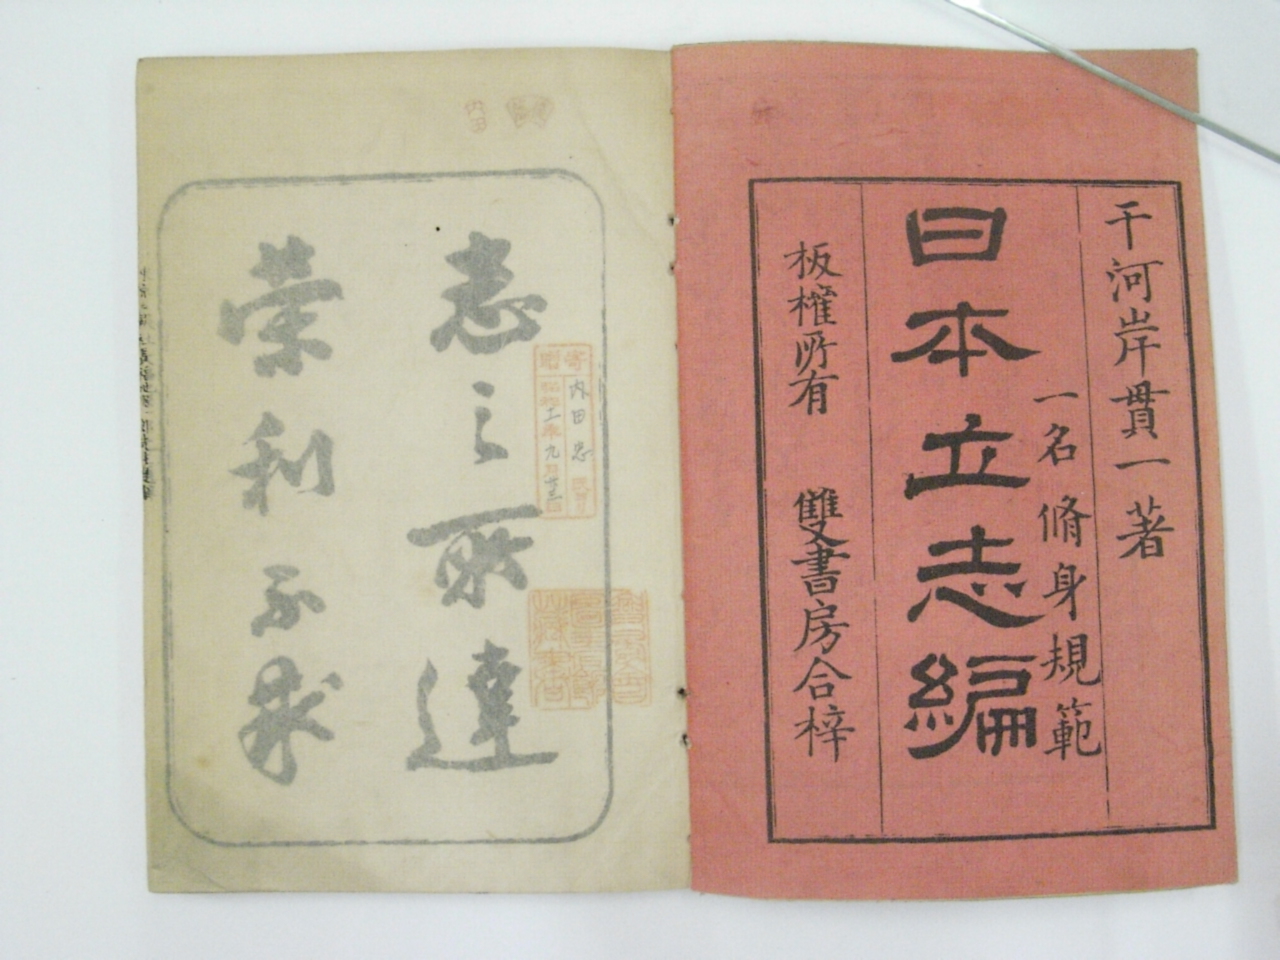 干河岸貫一著
一名脩身規範
日本立志編
板權所有 雙書房合梓
志之所達
榮利不求
寄贈
内田忠